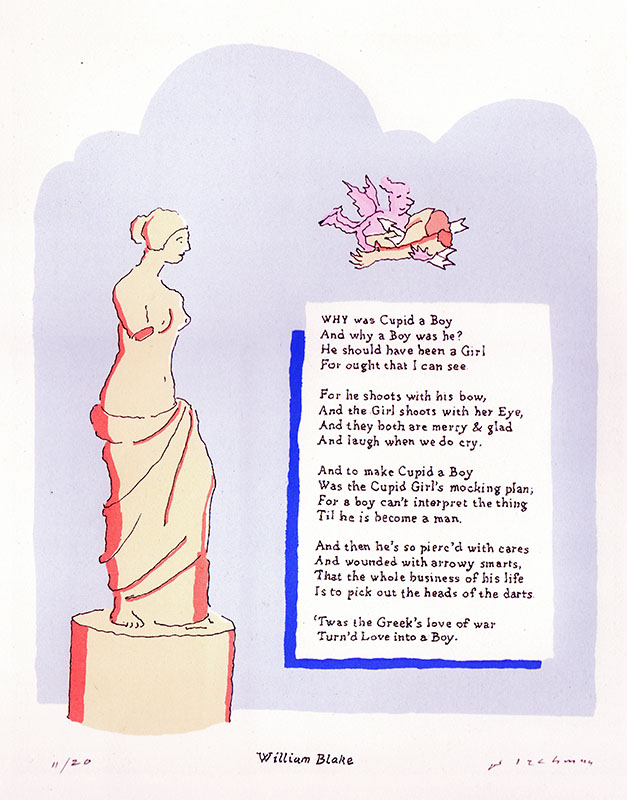 WHY was Cupid a Boy
And why a Boy was he?
He should have been a Girl
For ought that I can see
For he shoots with his bow,
And the Girl shoots with her Eye,
And they both are merry & glad
And laugh when we do cry.
And to make Cupid a Boy
Was the Cupid Girl's mocking plan;
For a boy can't interpret the thing
Til he is become a man.
And then he's so pierc'd with cares
And wounded with arrowy smarts,
That the whole business of his life
Is to pick out the heads of the darts.
'Twas the Greek's love of war
Turn'd Love into a Boy.
11/20
William Blake